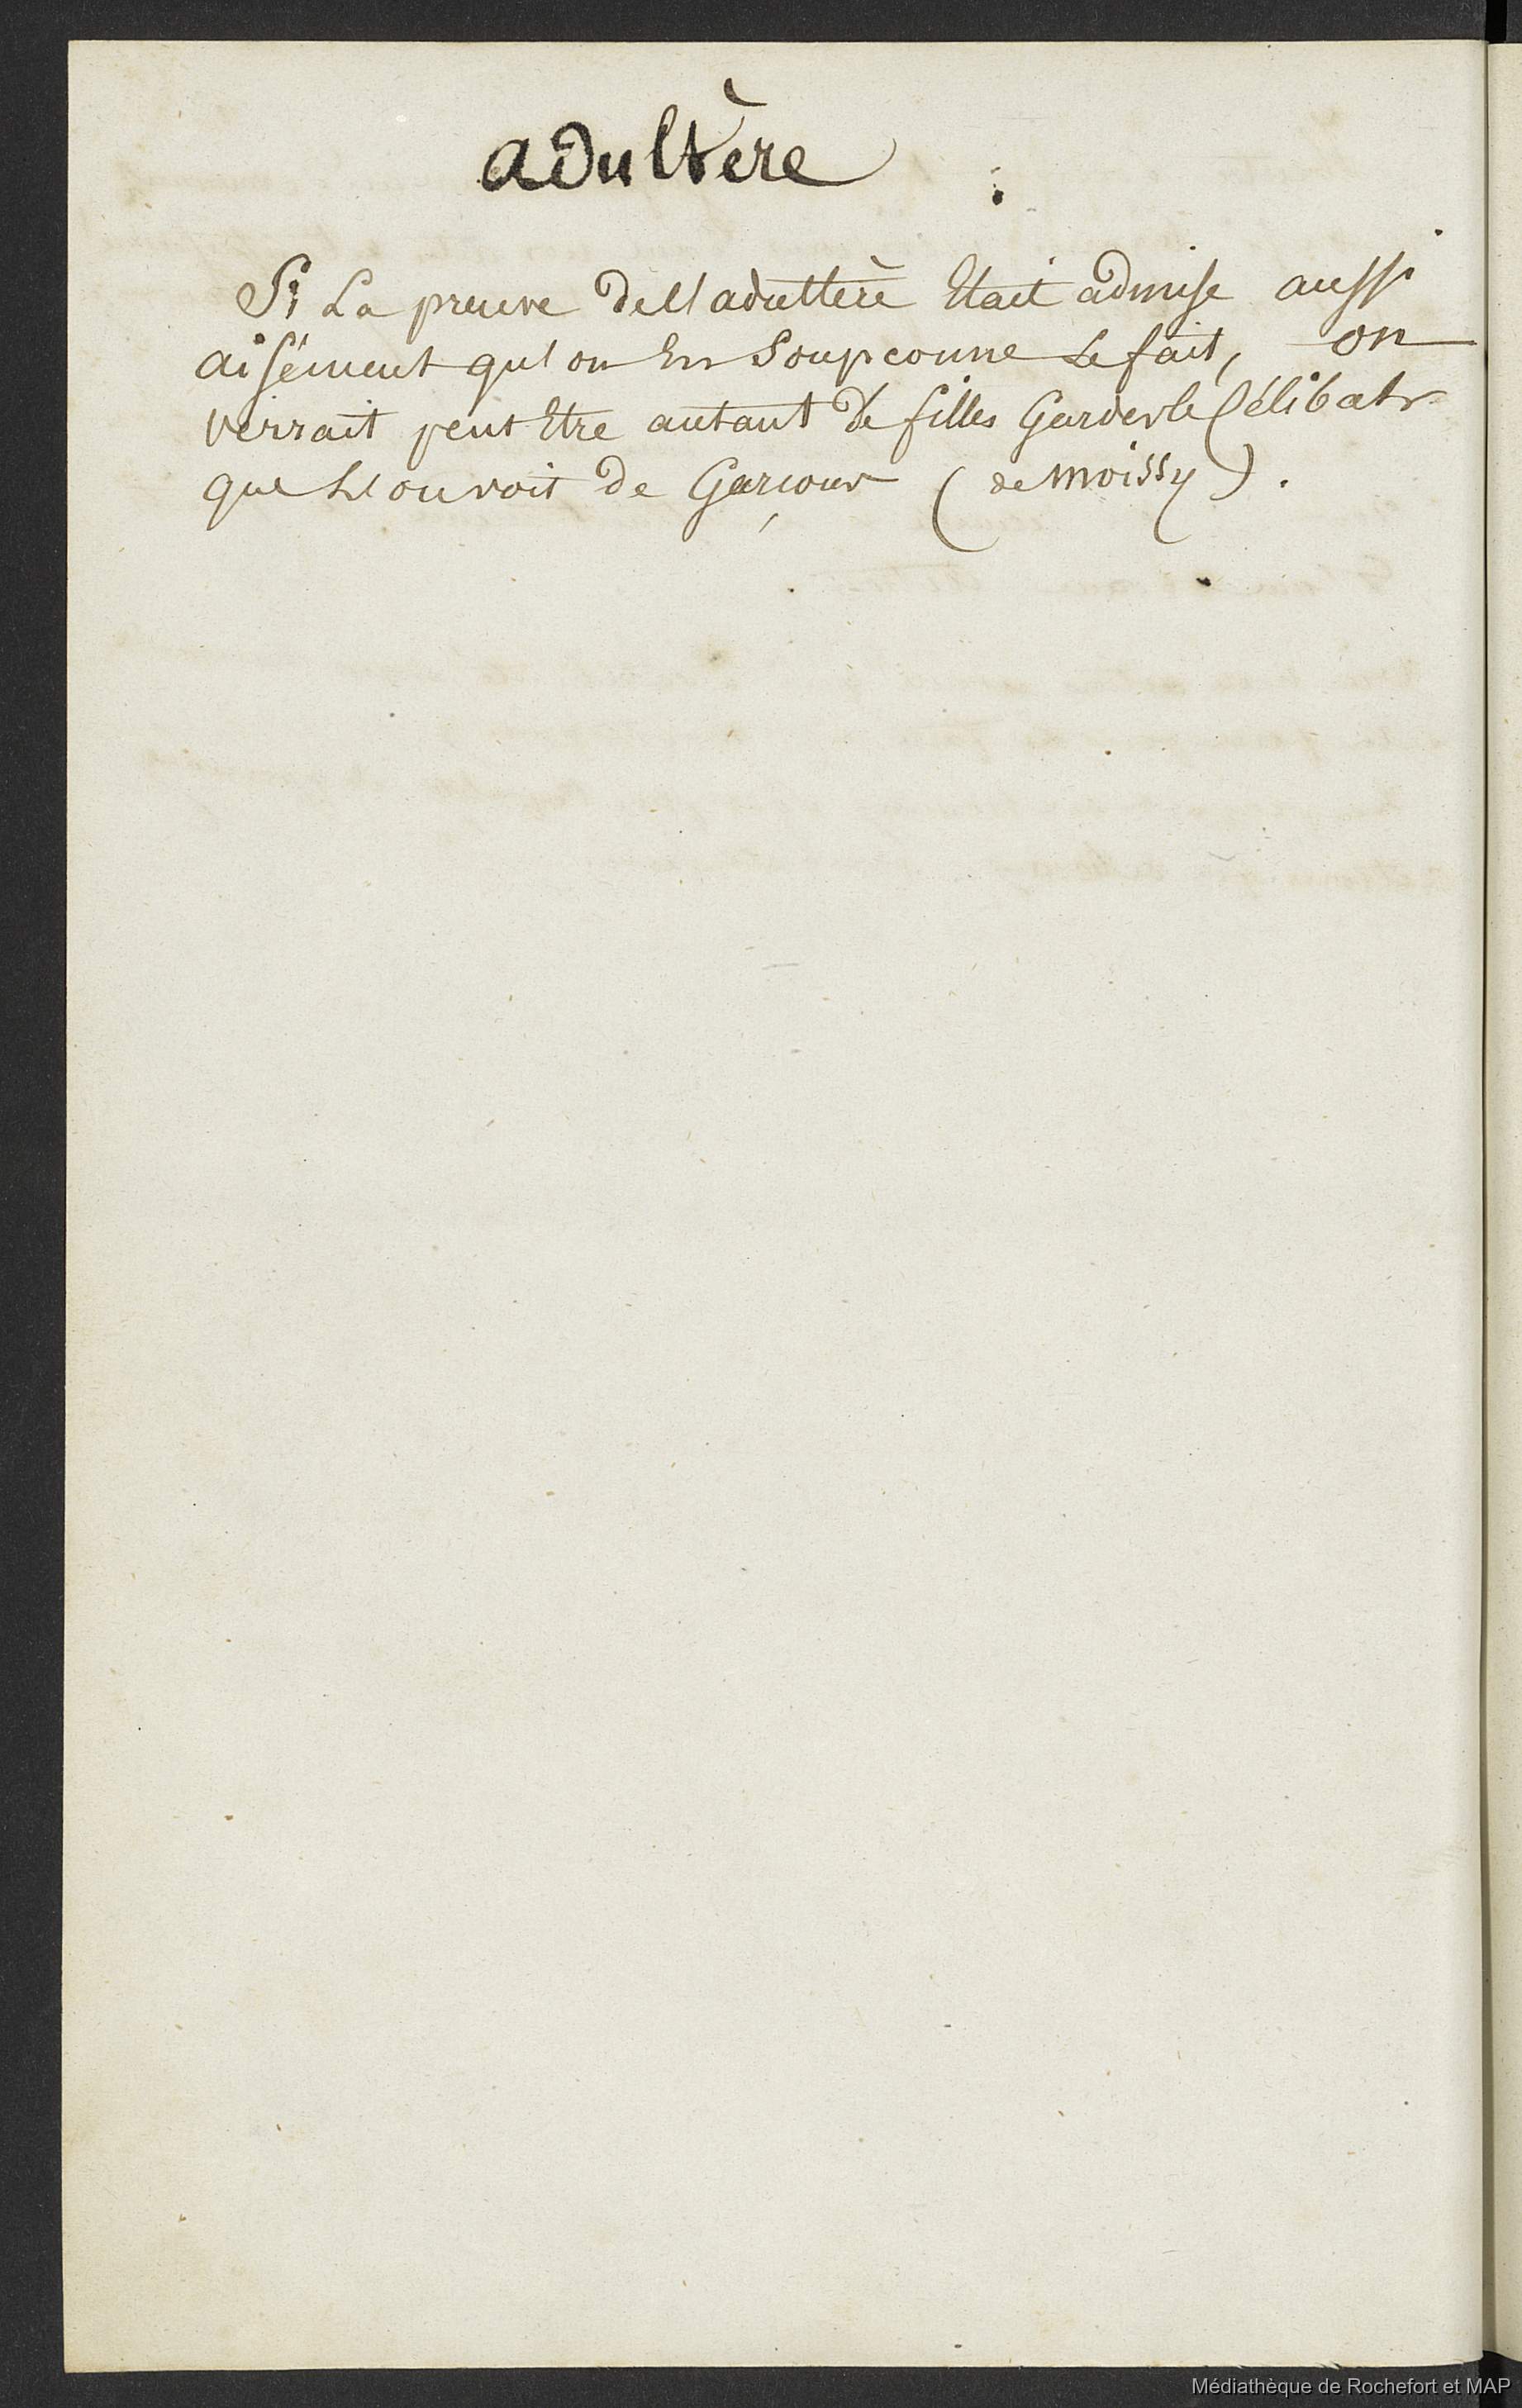 adultère
Si La preuve de l'adultère Etait admise aussi
aisément qu'on En Soupconne Le fait, on
verrait peut Etre autant de filles Garder le Célibat
que L'on voit de Garçons (de Moissy).
Médiathèque de Rochefort et MAP